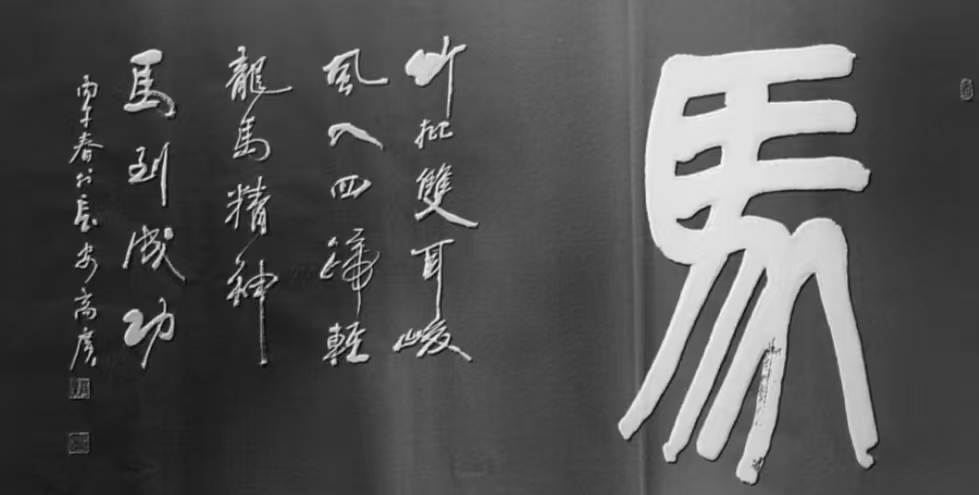 馬
竹批雙耳峻
風入四蹄輕
龍馬精神
馬到成功
丙午春於長安高彦